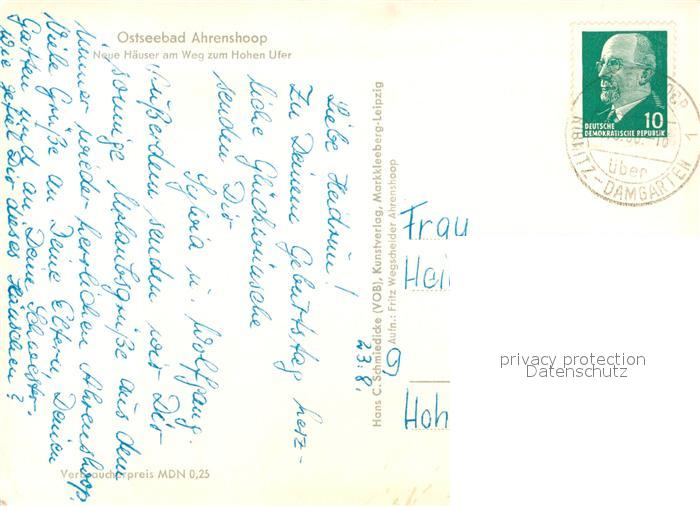 Ostseebad Ahrenshoop
Neue Häuser am Weg zum Hohen Ufer
Liebe Heidrun!
Zu Deinem Geburtstag herz-
liche Glückwünsche
senden Dir
Sylvia u. Wolfgang.
Außerdem senden wir Dir
sonnige Urlaubsgrüße aus dem
immer wieder herrlichen Ahrenshoop.
Viele Grüße an Deine Eltern, Deinen
Gatten und an Deine Schwester.
Wie gefällt Dir dieses Häuschen?
23.8.
Verbraucherpreis MDN 0,25
Hans C. Schmiedicke (VOB), Kunstverlag, Markkleeberg-Leipzig
Aufn.: Fritz Wegscheider Ahrenshoop
10
DEUTSCHE
DEMOKRATISCHE REPUBLIK
über
RIBNITZ-DAMGARTEN 1
Frau
Hei
Hoh
privacy protection
Datenschutz